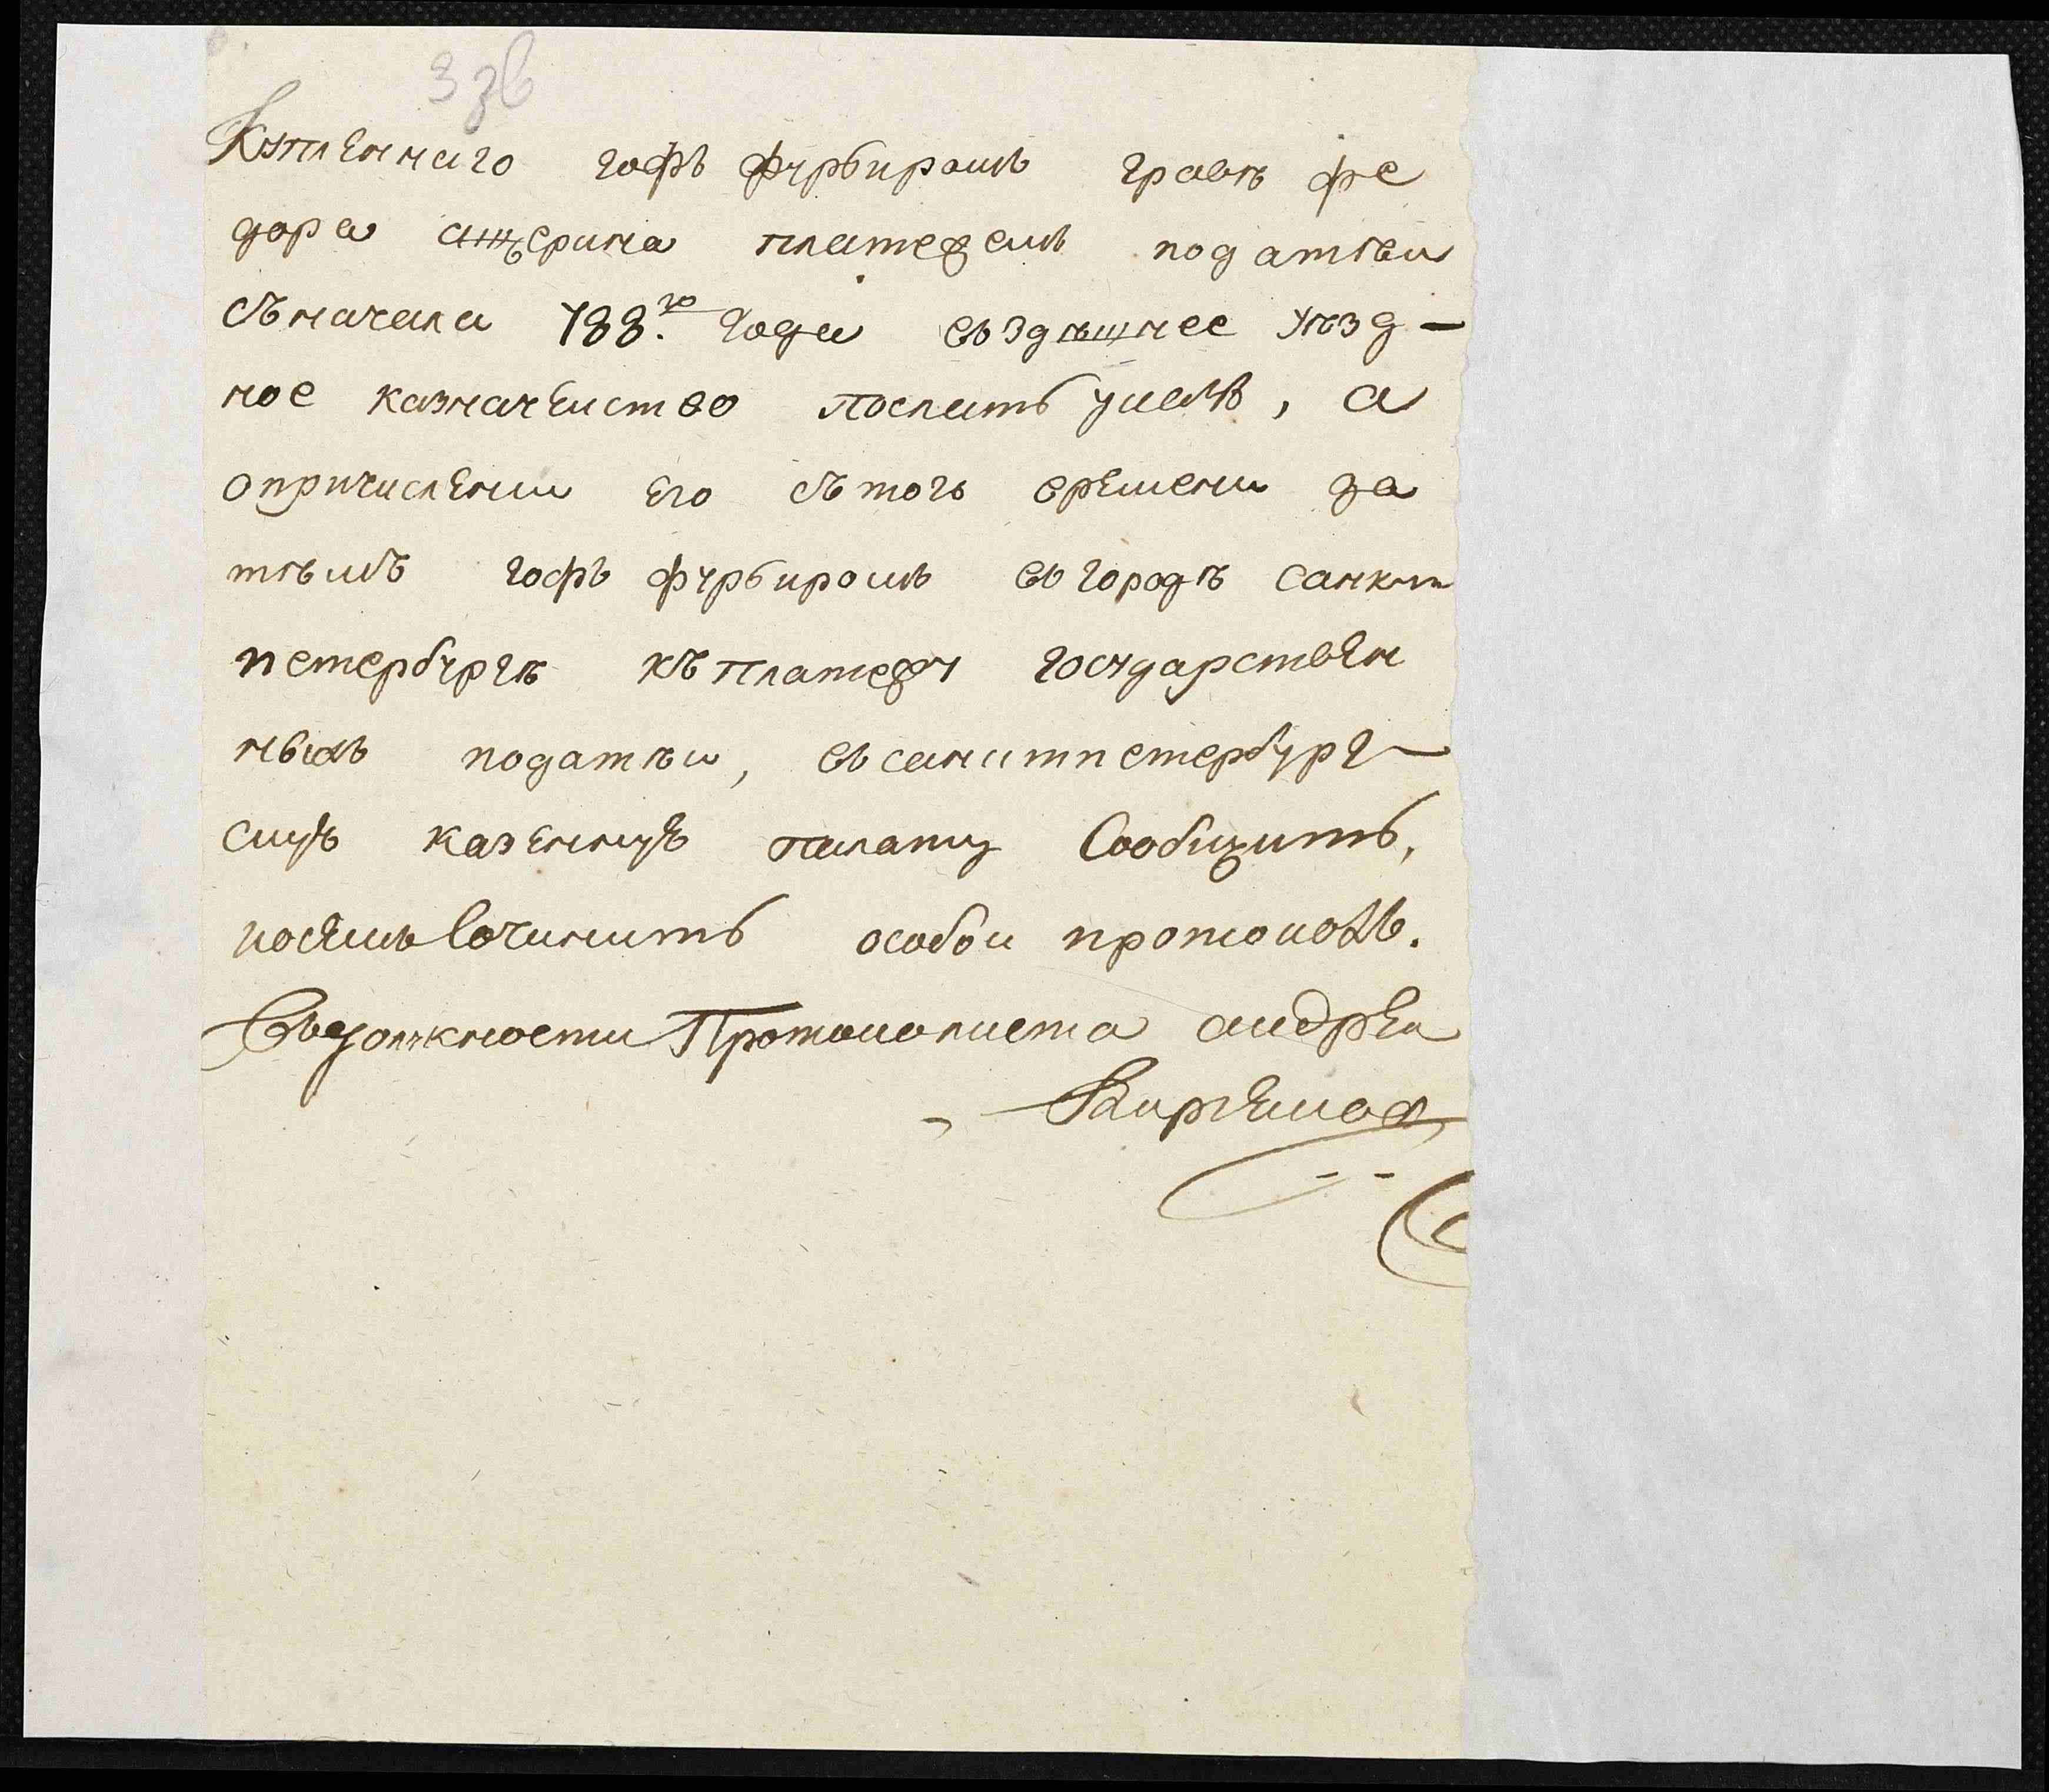 купленнаго гофъ фурбиромъ гравѣ фе
дора ащерина платежемъ податѣи
съ начала 788.го года въ здѣшнее уѣзд-
ное казначеиство послать указъ, а
о причислении его съ того времени за
тѣмъ гофъ фурбиромъ въ городѣ санкт
петербургѣ къ платежу государствен
ныхъ податѣи, въ санктпетербург-
скую казенную палату Сообщить,
и о семъ Сочинить особои протоколъ.
Въ должности Протоколиста андреи